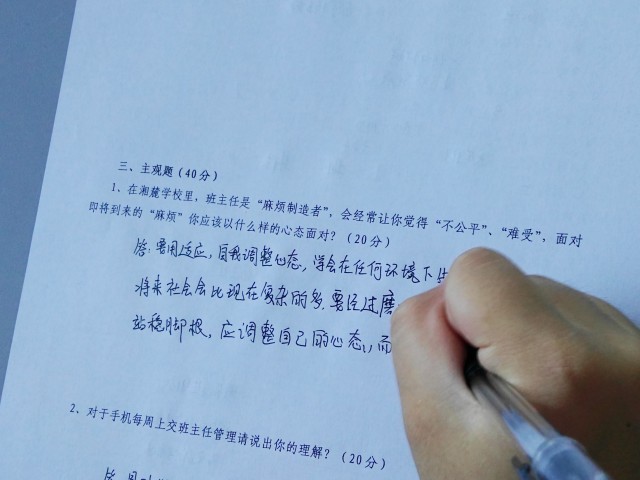 三、主观题（40分）
1、在湘麓学校里，班主任是“麻烦制造者”，会经常让你觉得“不公平”、“难受”，面对
即将到来的“麻烦”你应该以什么样的心态面对？（20分）
答：要用适应，自我调整心态，学会在任何环境下生
将来社会会比现在复杂的多，要经过磨
站稳脚根，应调整自己的心态，而
2、对于手机每周上交班主任管理请说出你的理解？（20分）
答